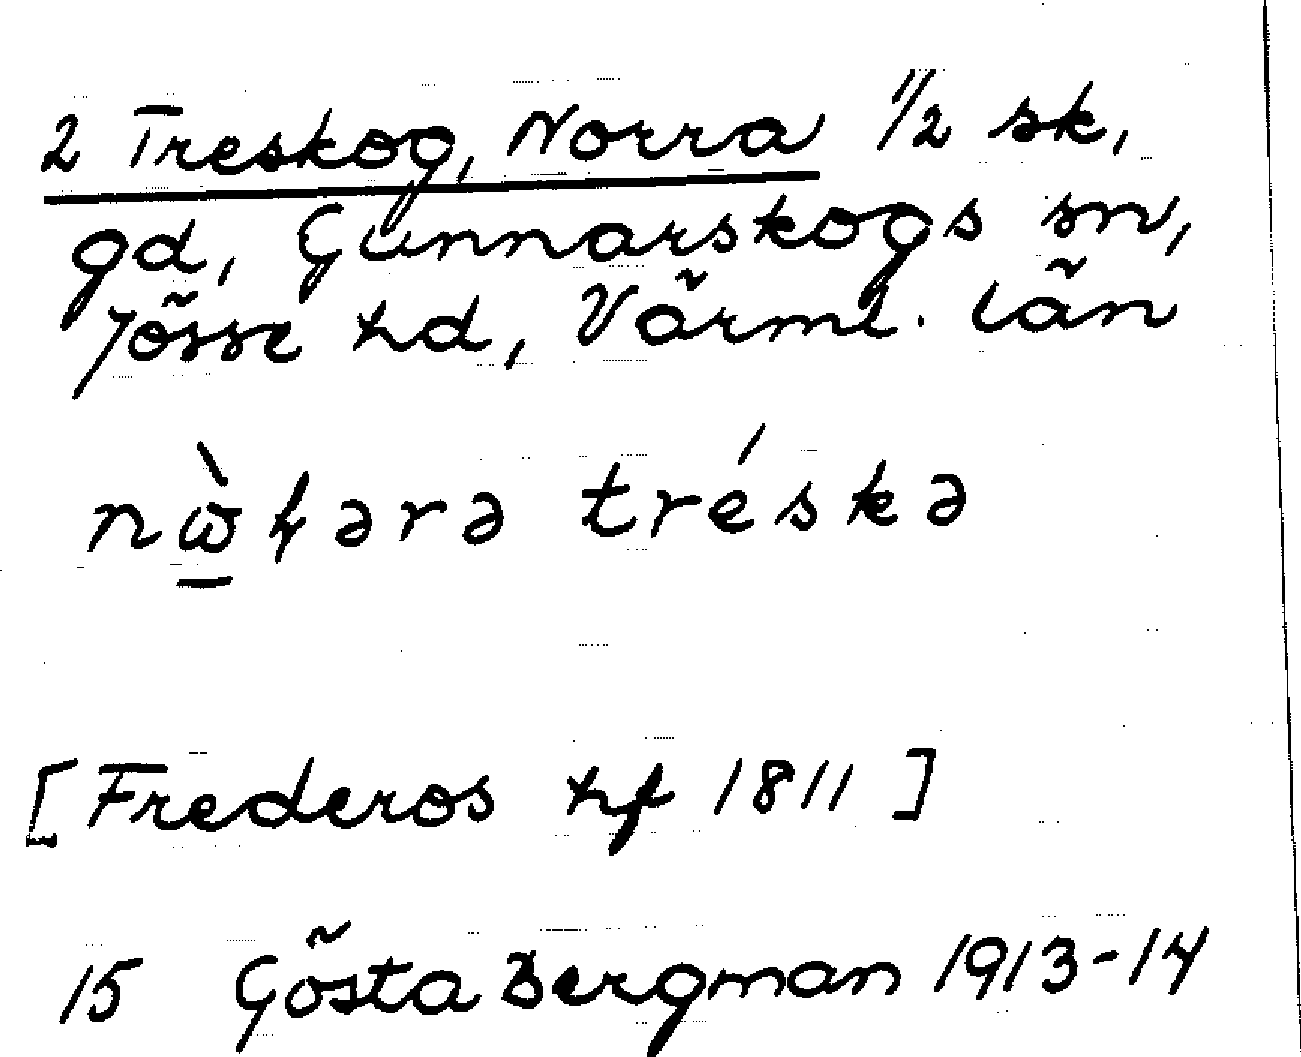 2 Treskog, Norra 1/2 sk,
gd, Gunnarskogs sn,
Jösse hd, Värml. län
nɷ̠̀ꞕərə tréskə
[Frederos hf 1811]
15 Gösta Bergman 1913-14